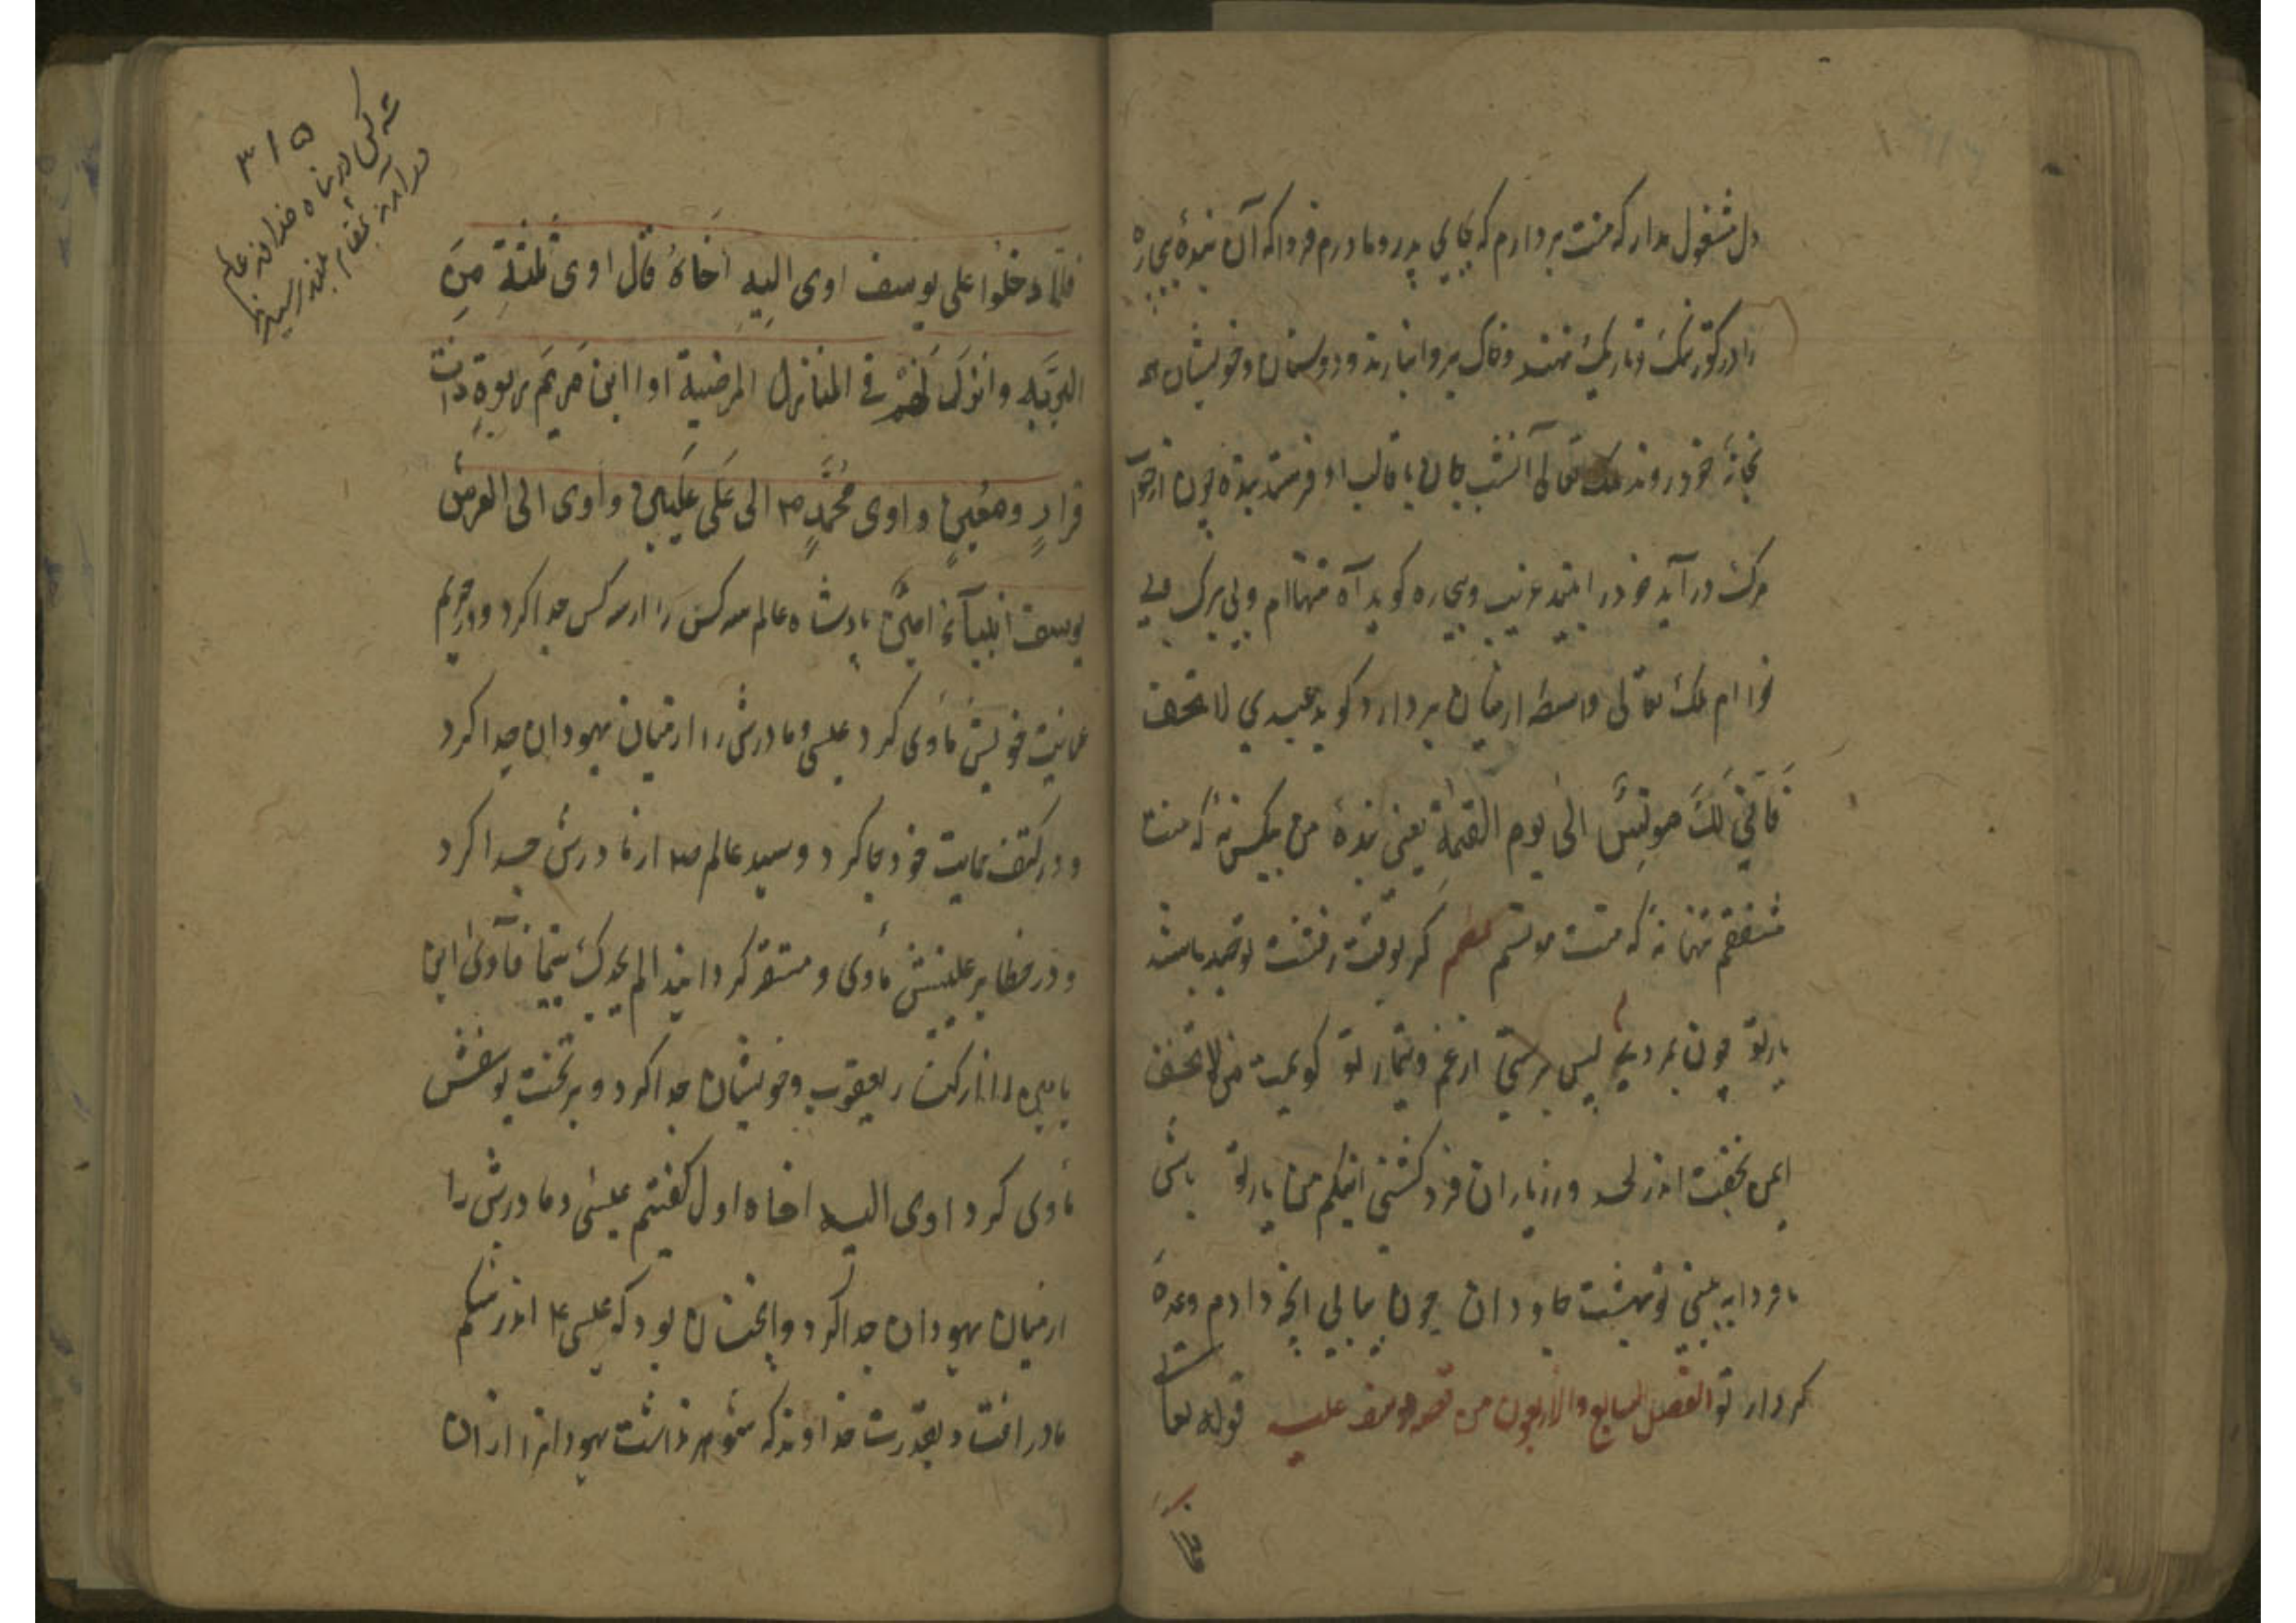 دل مشغول مدار که منت بردارم که بجای پدر و مادرم فردا که آن بندۀ بیچاره
را در گور تنگ و تاریک نهند و خاک برو انبارند و دوستان و خویشان همه
بخانۀ خود روند ملک تعالی آنشب جان با قالب او فرستد بنده چون از خواب
مرگ در آید خود را بیند غریب و بیچاره گوید آه تنهاام و بی برگ و بی
نوا ام ملک تعالی واسطه از میان بردارد گوید عبدي لا تخف
فَاَنّي لَكَ مونِسٌ الی یوم القیمة یعنی بندۀ من بیکس نۀ که منت
مشفقم تنها نۀ که منت مونسم نظم گر بوقت رفتنت توحید باشد
یار تو چون بمردی پس مترس از غم و تیمار تو گویمت من لا تخف
ایمن بخفت اندر لحد ور ز یاران فرد گشتی اینکم من یار تو باش
تا فردا به بینی تو بهشت جاودان چون بیابی آنچه دادم وعدۀ
کردار تو الفصل السابع والاربعون من قصه یوسف علیه قوله تعالی
فلما
۳۱۵
سه کس در پناه خداوند عالم
در آمدند بمقام بلند رسیدند
فلمّا دخلُوا علی یوسف اوی الیهِ اَخَاهُ قال اوی ثلثةٌ مِنَ
البریّه وانزلَ لَهُمْ فی المنازل المرضیة اوا ابن مَریَم بربوةٍ ذات
قرارٍ ومعینٍ واوی محُمّدٍ ص الی عَلَی علّیین واوی الی العرش
یوسف ابنیامین پادشاه عالم سه کس را از سه کس جدا کرد و در حریم
عنایت خویش مأوی کرد عیسی و مادرش را از میان یهودان جدا کرد
و در کنف حمایت خود جا کرد و سید عالم ص از مادرش جدا کرد
و در حظایر علیینش مأوی و مستقر گردانید الم یجدك یتیما فآوی ابن
یامین را از کنار یعقوب و خویشان جدا کرد و بر تخت یوسفش
مأوی کرد اوی الیه اخاه اول گفتیم عیسی و مادرش را
از میان یهودان جدا کرد و آنچنان بود که عیسی ع اندر شکم
مادر افتاد بقدرت خداوند که شوهر نداشت یهودانرا از آن